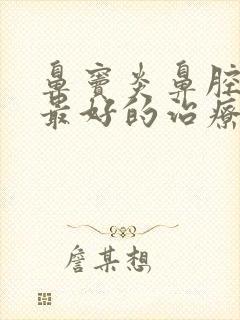 鼻窦炎鼻腔
最好的治疗
詹某想